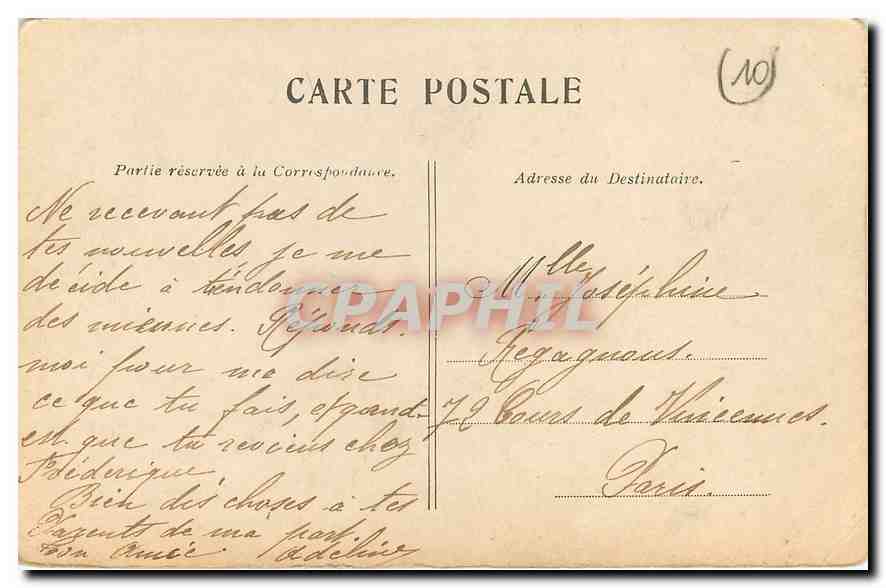 CARTE POSTALE
(10)
Partie réservée à la Correspondance.
Adresse du Destinataire.
Ne recevant pas de
tes nouvelles, je me
décide à t'en donner
des miennes. Réponds-
moi pour me dire
ce que tu fais, et quand-
est que tu reviens chez
Fréderique
Bien des choses à tes
Parents de ma part.
Ton Amie. Adeline
Mlle Joséphine
Regagnous.
72 Cours de Vincennes.
Paris.
CPAPHIL